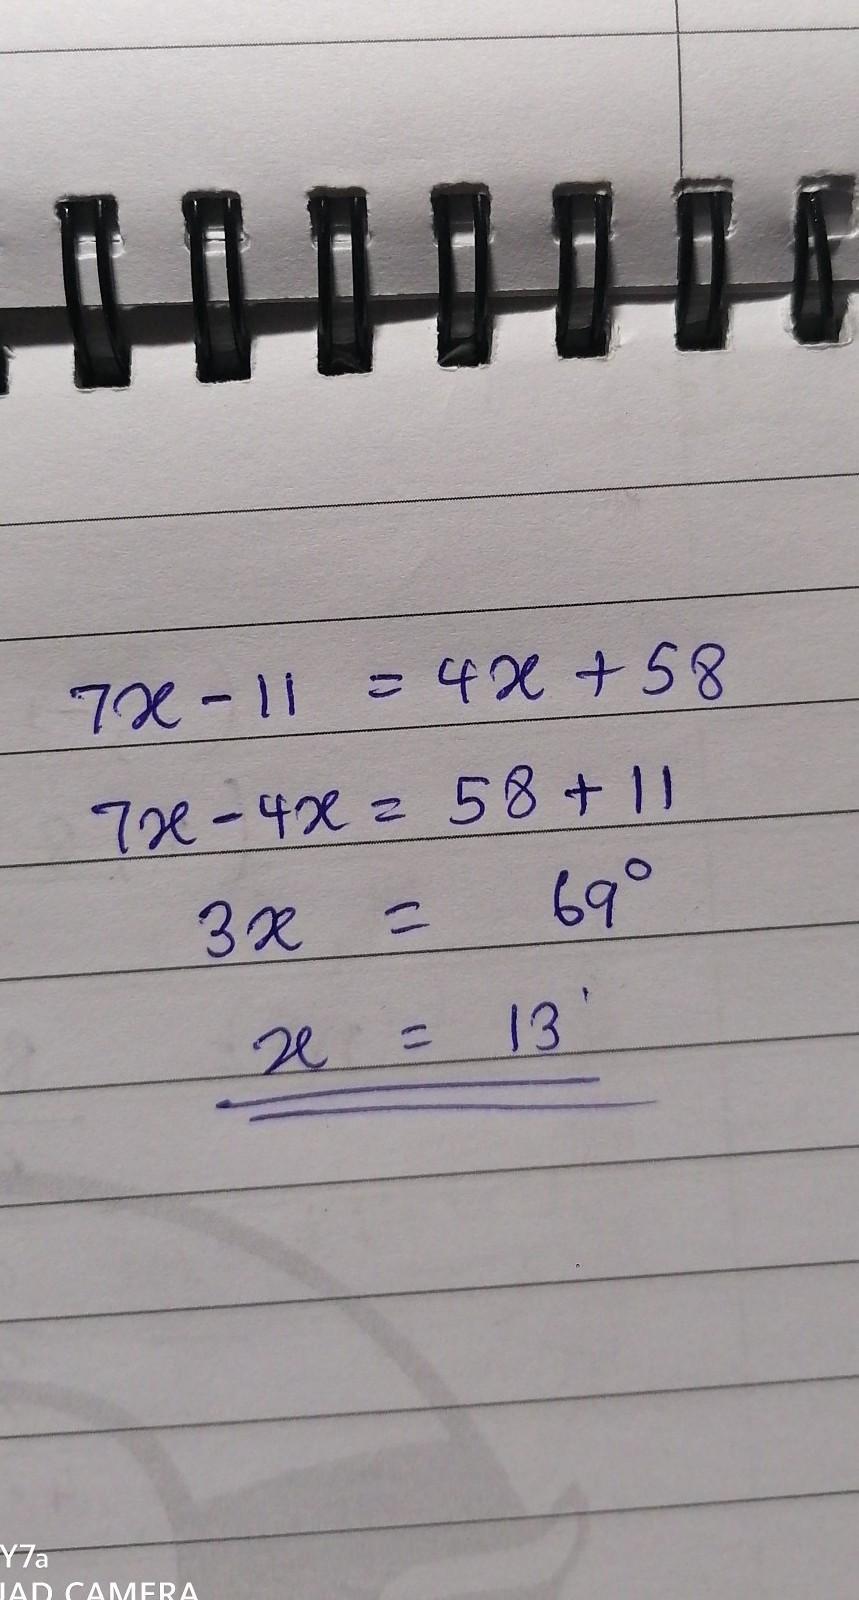 7x - 11 = 4x + 58
7x - 4x = 58 + 11
3x = 69°
x = 13'
Y7a
UAD CAMERA